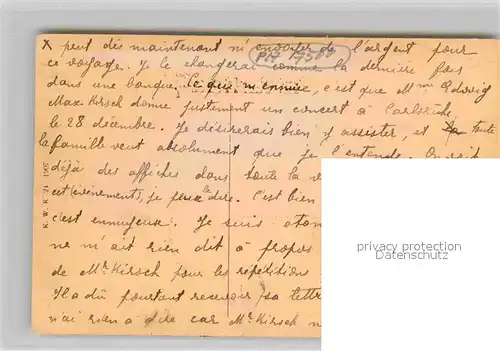 X peut dès maintenant m'envoyer de l'argent pour
PH 17585
ce voyage. Je le changerai comme la dernière fois
dans une banque. Ce qui m'ennuie, c'est que Mme Hedwig
Max Kirsch donne justement un concert à Carlsruhe
le 28 décembre. Je désirerais bien y assister, et toute
la famille veut absolument que je l'entende. On voit
déjà des affiches dans toute la v
cet événements, je peux le dire. C'est bien
c'est ennuyeux. Je suis éton
ne m'ait rien dit à propos
de Mr. Kirsch pour les répétitions
Il a dû pourtant recevoir sa lettre
n'ai rien à dire car Mr. Kirsch n
privacy protection
Datenschutz